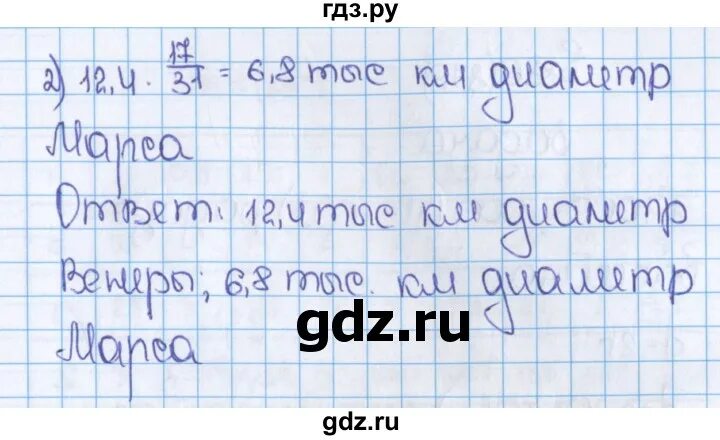 гдз.ру
2) 12,4 · 17/31 = 6,8 тыс км диаметр
Марса
Ответ: 12,4 тыс км диаметр
Венеры; 6,8 тыс. км диаметр
gdz.ru
Марса
gdz.ru